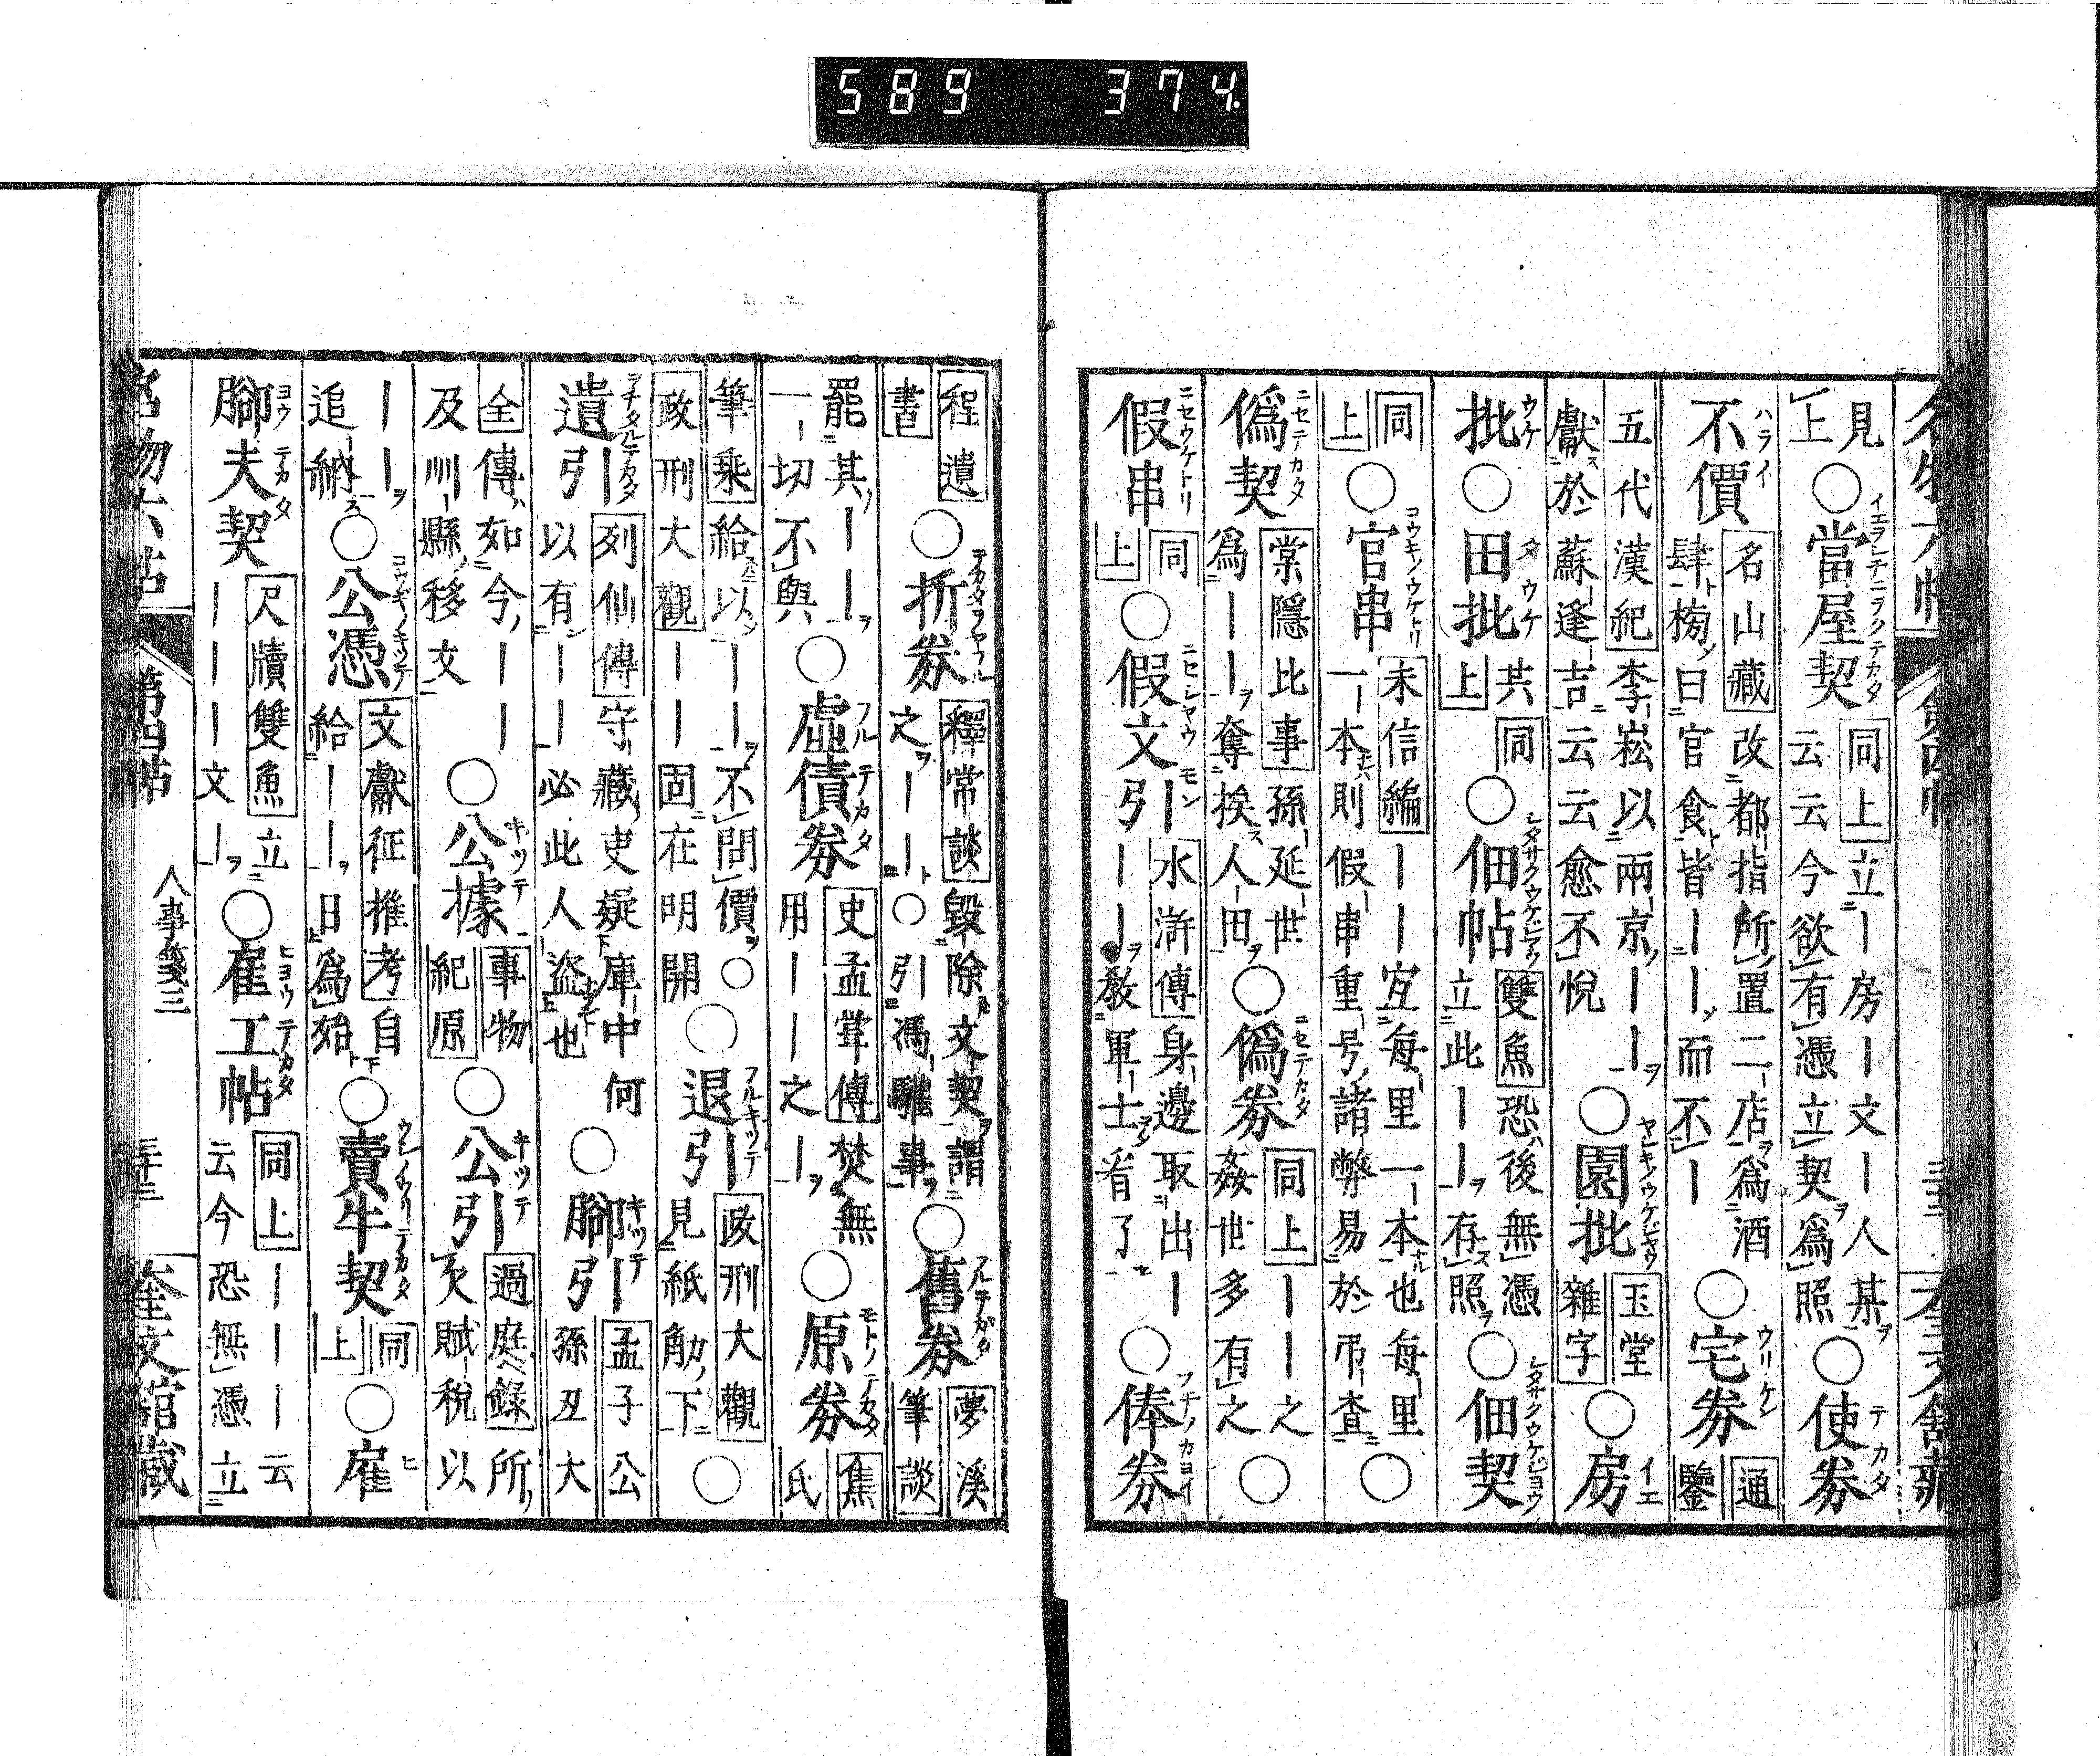 589 374.
見
上○當屋契同上立｜房｜文｜人某
云云今欲有憑立契爲照○使券
不價名山藏改都指所置二店爲酒
肆榜曰官食皆｜｜而不｜○宅券通鑒
五代漢紀李崧以兩京｜｜
獻於蘇逢吉云云愈不悅○園批玉堂雜字○房
批○田批共同上○佃帖雙魚恐後無憑
立此｜｜存照○佃契
同上○官串未信編｜｜宜每里一本也每里
一本則假串重号諸弊易於吊查○
僞契棠隱比事孫延世
爲｜｜奪挨人田○僞券同上｜｜之
姦世多有之○
假串同上○假文引水滸傳身邊取出｜
｜｜教軍士看了○俸券
程遺書○折券釋常談毀除文契謂
之｜｜○引馮驩事○舊券夢溪筆談
罷其｜｜
一切不與○虛債券史孟甞傳焚無
用｜｜之｜○原券焦氏
筆乘給以｜｜不問價○
政刑大觀｜｜固在明開○退引政刑大觀
見紙觔下○
遺引列仙傳守藏吏疑庫中何
以有｜｜必此人盜也○腳引孟子公孫丑大
全傳如今｜｜
及州縣移文○公據事物紀原○公引過庭錄所
欠賦稅以
｜｜
追納○公憑文獻征推考自
給｜｜日爲始○賣牛契同上○雇
腳夫契尺牘雙魚立
｜｜｜文｜○雇工帖同上｜｜｜云
云今恐無憑立
名物六帖 第四帖 人事箋三 三十三 奎文館藏